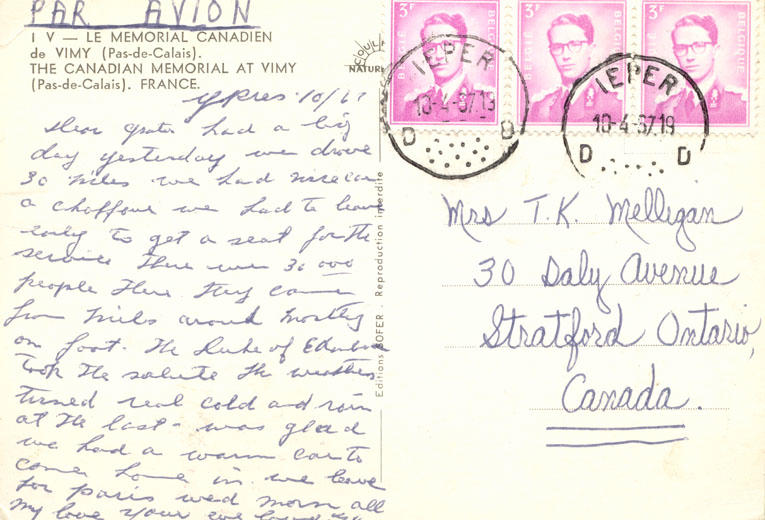 PAR AVION
I V — LE MEMORIAL CANADIEN
de VIMY (Pas-de-Calais).
THE CANADIAN MEMORIAL AT VIMY
(Pas-de-Calais). FRANCE.
NATURE
3F BELGIE BELGIQUE
3F BELGIE BELGIQUE
3F BELGIE BELGIQUE
IEPER
10-4-67 19
D D
IEPER
10-4-67 19
D D
Ypres 10/67
Dear had a big
day yesterday we drove
30 miles we had nice car
a choffour we had to leave
early to get a seat for the
service there were 30 000
people there they came
from miles around mostly
on foot the Duke of
took the salute the weather
turned real cold and rain
at the last - was glad
we had a warm car to
come home in. we leave
for paris wed morn all
my love your
Editions SOFER - Reproduction interdite
Mrs T.K. Melligan
30 Daly Avenue
Stratford Ontario,
Canada.